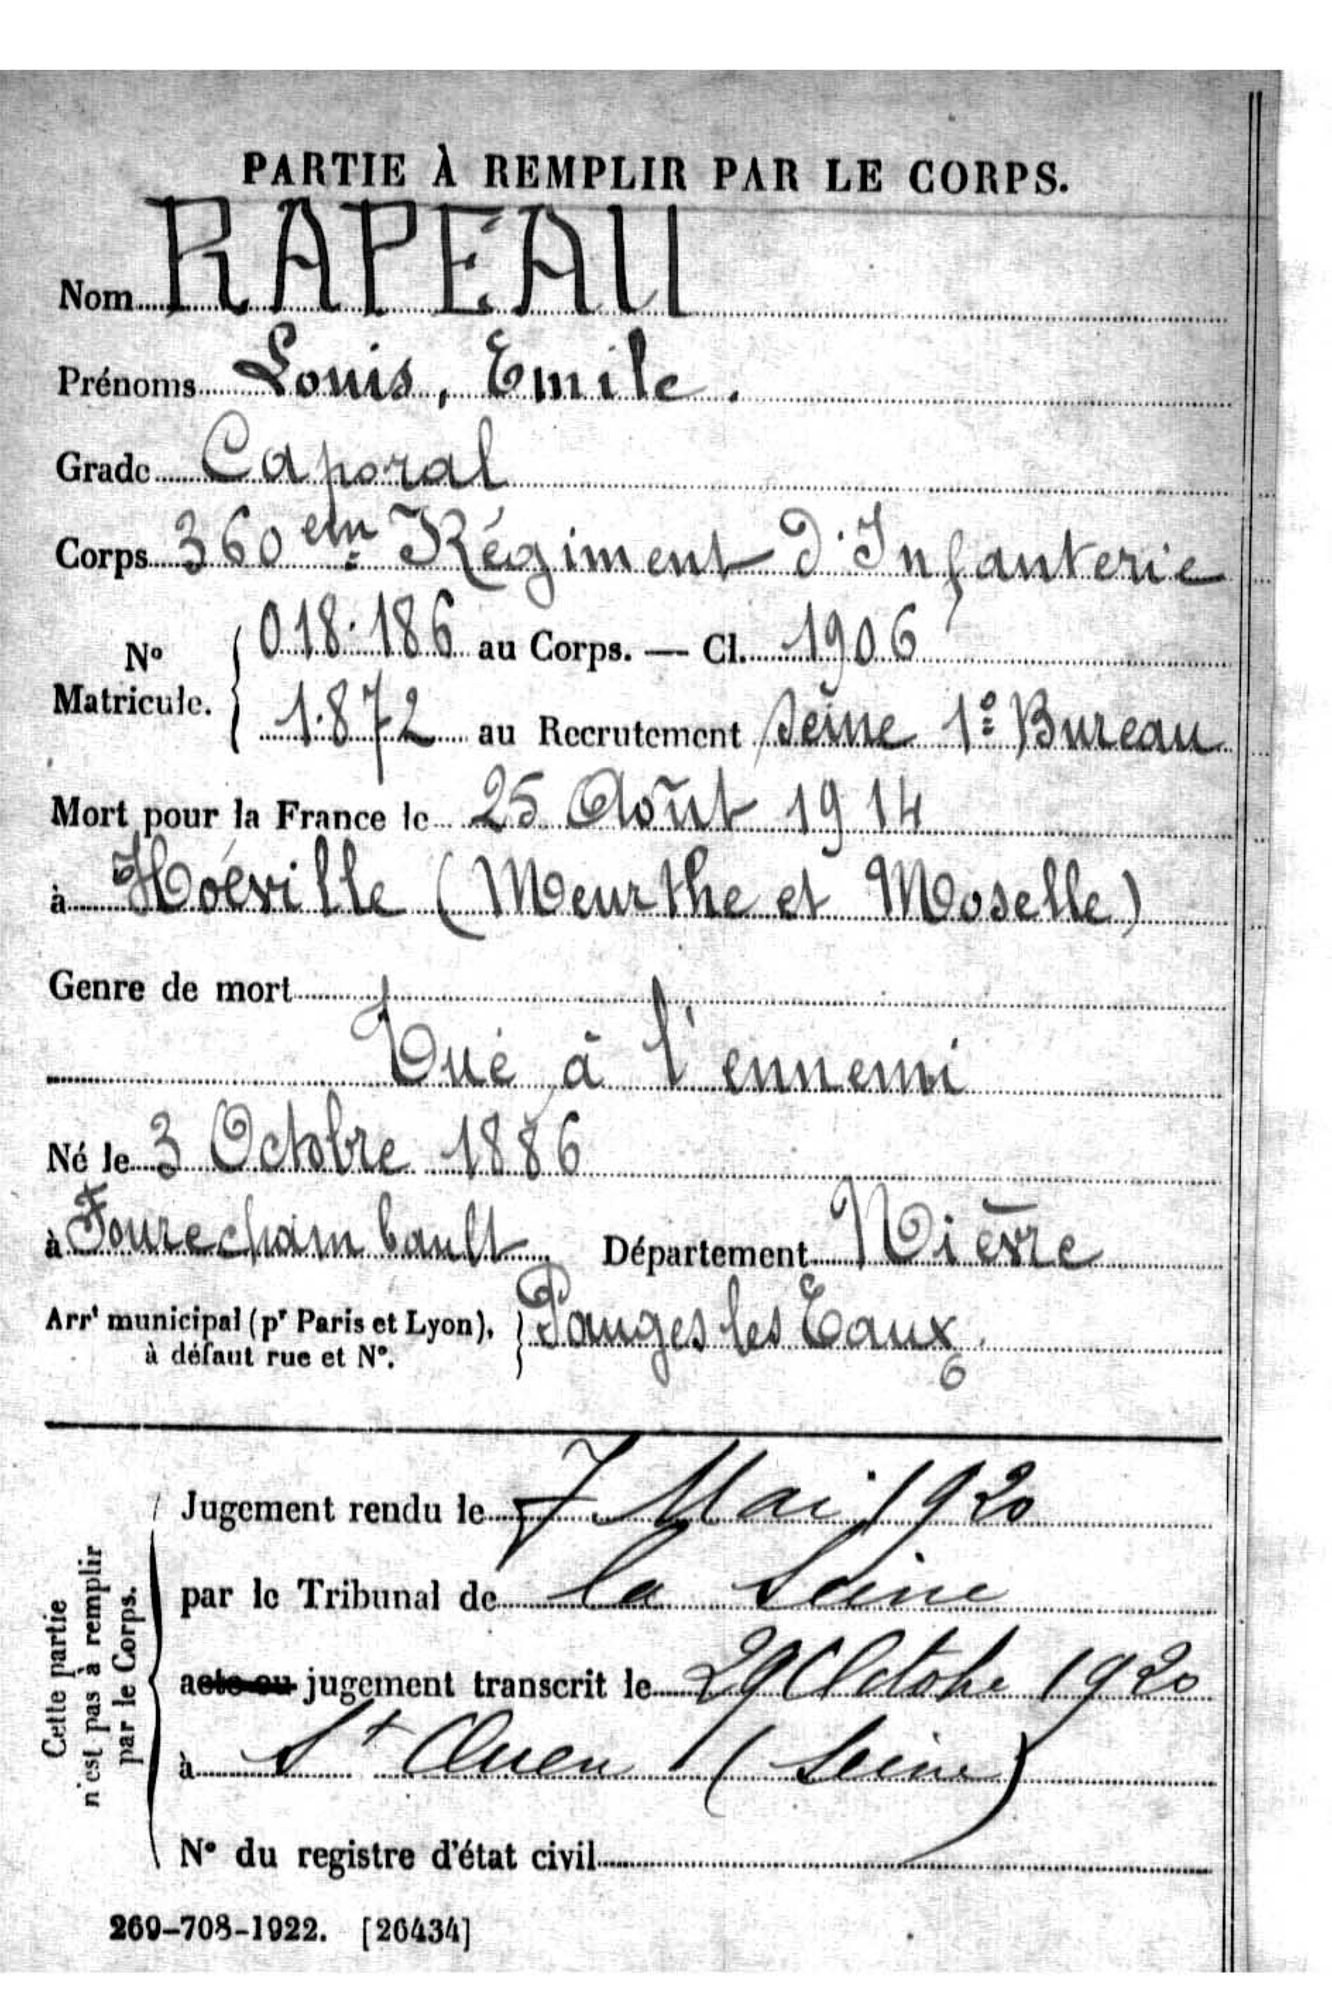 PARTIE À REMPLIR PAR LE CORPS.
Nom RAPEAU
Prénoms Louis, Emile.
Grade Caporal
Corps 360em Régiment d'Infanterie
No Matricule. { 018.186 au Corps. — Cl. 1906
1.872 au Recrutement Seine 1o Bureau
Mort pour la France le 25 Août 1914
à Hoéville (Meurthe et Moselle)
Genre de mort
Tué à l'ennemi
Né le 3 Octobre 1886
à Fourechambault Département Nièvre
Arrt municipal (pr Paris et Lyon), } Pouges les Eaux
à défaut rue et No.
6
Cette partie n'est pas à remplir par le Corps.
Jugement rendu le 7 Mai 1920
par le Tribunal de la Seine
acte ou jugement transcrit le 29 Octobe 1920
à St Ouen (Seine)
No du registre d'état civil
269-708-1922. [26434]